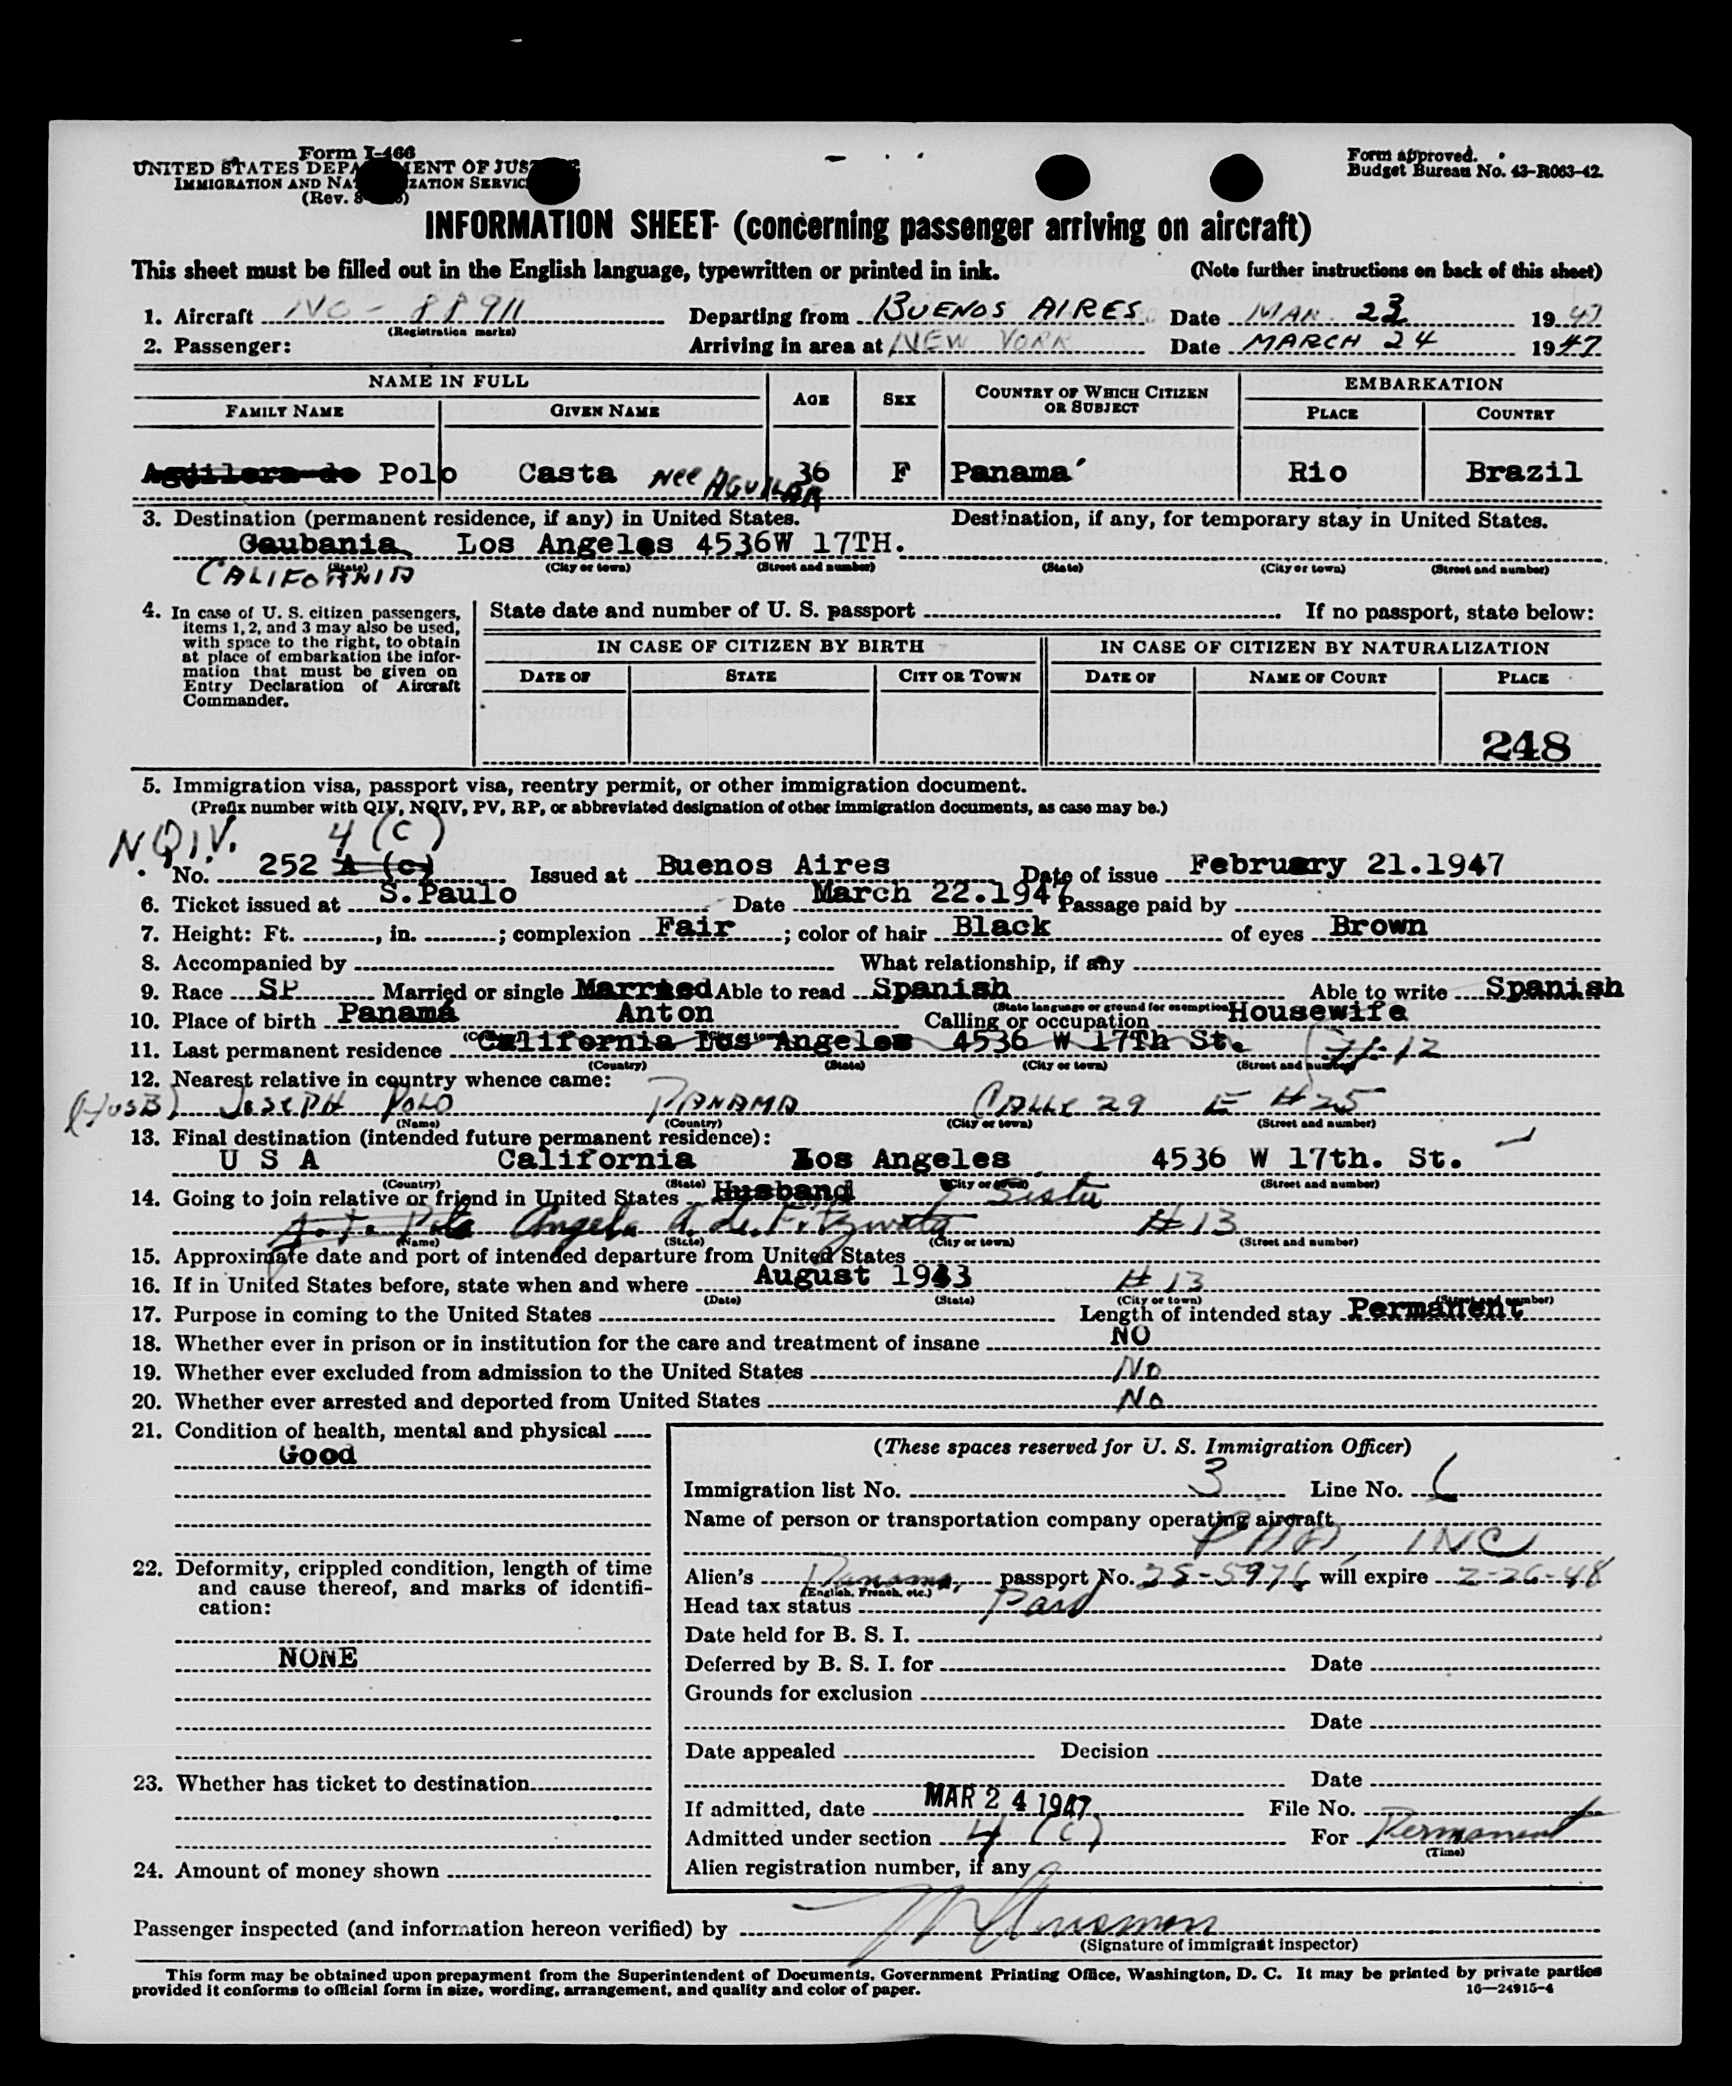 Form I-466
UNITED STATES DEPARTMENT OF JUSTICE
IMMIGRATION AND NATURALIZATION SERVICE
(Rev. 8
Form approved.
Budget Bureau No. 43-R063-42.
INFORMATION SHEET (concerning passenger arriving on aircraft)
This sheet must be filled out in the English language, typewritten or printed in ink. (Note further instructions on back of this sheet)
1. Aircraft NC - 88911 Departing from BUENOS AIRES Date MAR. 23 1947
(Registration marks)
2. Passenger: Arriving in area at NEW YORK Date MARCH 24 1947
NAME IN FULL AGE SEX COUNTRY OF WHICH CITIZEN OR SUBJECT EMBARKATION
FAMILY NAME GIVEN NAME PLACE COUNTRY
Aguilera de Polo Casta nee AGUILAR 36 F Panamá Rio Brazil
3. Destination (permanent residence, if any) in United States. Destination, if any, for temporary stay in United States.
Los Angeles 4536W 17TH.
(State) (City or town) (Street and number) (State) (City or town) (Street and number)
CALIFORNIA
4. In case of U. S. citizen passengers, items 1, 2, and 3 may also be used, with space to the right, to obtain at place of embarkation the information that must be given on Entry Declaration of Aircraft Commander.
State date and number of U. S. passport If no passport, state below:
IN CASE OF CITIZEN BY BIRTH IN CASE OF CITIZEN BY NATURALIZATION
DATE OF STATE CITY OR TOWN DATE OF NAME OF COURT PLACE
248
5. Immigration visa, passport visa, reentry permit, or other immigration document.
(Prefix number with QIV, NQIV, PV, RP, or abbreviated designation of other immigration documents, as case may be.)
NQIV. 4 (C)
No. 252 A (c) Issued at Buenos Aires Date of issue February 21.1947
6. Ticket issued at S.Paulo Date March 22.1947 Passage paid by
7. Height: Ft. , in. ; complexion Fair ; color of hair Black of eyes Brown
8. Accompanied by What relationship, if any
9. Race SP Married or single Married Able to read Spanish Able to write Spanish
(State language or ground for exemption)
10. Place of birth Panamá Anton Calling or occupation Housewife
11. Last permanent residence California Los Angeles 4536 W 17Th St. #12
(Country) (State) (City or town) (Street and number)
12. Nearest relative in country whence came:
(HUSB) JOSEPH POLO PANAMA CALLE 29 E #25
(Name) (Country) (City or town) (Street and number)
13. Final destination (intended future permanent residence):
U S A California Los Angeles 4536 W 17th. St.
(Country) (State) (City or town) (Street and number)
14. Going to join relative or friend in United States Husband Sister
Angela A. de #13
(Name) (State) (City or town) (Street and number)
15. Approximate date and port of intended departure from United States
16. If in United States before, state when and where August 1943 #13
(Date) (State) (City or town) (Street and number)
17. Purpose in coming to the United States Length of intended stay Permanent
18. Whether ever in prison or in institution for the care and treatment of insane NO
19. Whether ever excluded from admission to the United States No
20. Whether ever arrested and deported from United States No
21. Condition of health, mental and physical
Good
22. Deformity, crippled condition, length of time and cause thereof, and marks of identification:
NONE
23. Whether has ticket to destination
24. Amount of money shown
(These spaces reserved for U. S. Immigration Officer)
Immigration list No. 3 Line No. 6
Name of person or transportation company operating aircraft
INC
Alien's Panama, passport No. 25-5976 will expire 2-26-48
(English, French, etc.)
Head tax status Paid
Date held for B. S. I.
Deferred by B. S. I. for Date
Grounds for exclusion
Date
Date appealed Decision
Date
If admitted, date MAR 24 1947 File No.
Admitted under section 4 (C) For Permanent
(Time)
Alien registration number, if any
Passenger inspected (and information hereon verified) by
(Signature of immigrant inspector)
This form may be obtained upon prepayment from the Superintendent of Documents, Government Printing Office, Washington, D. C. It may be printed by private parties
provided it conforms to official form in size, wording, arrangement, and quality and color of paper. 16—24915-4